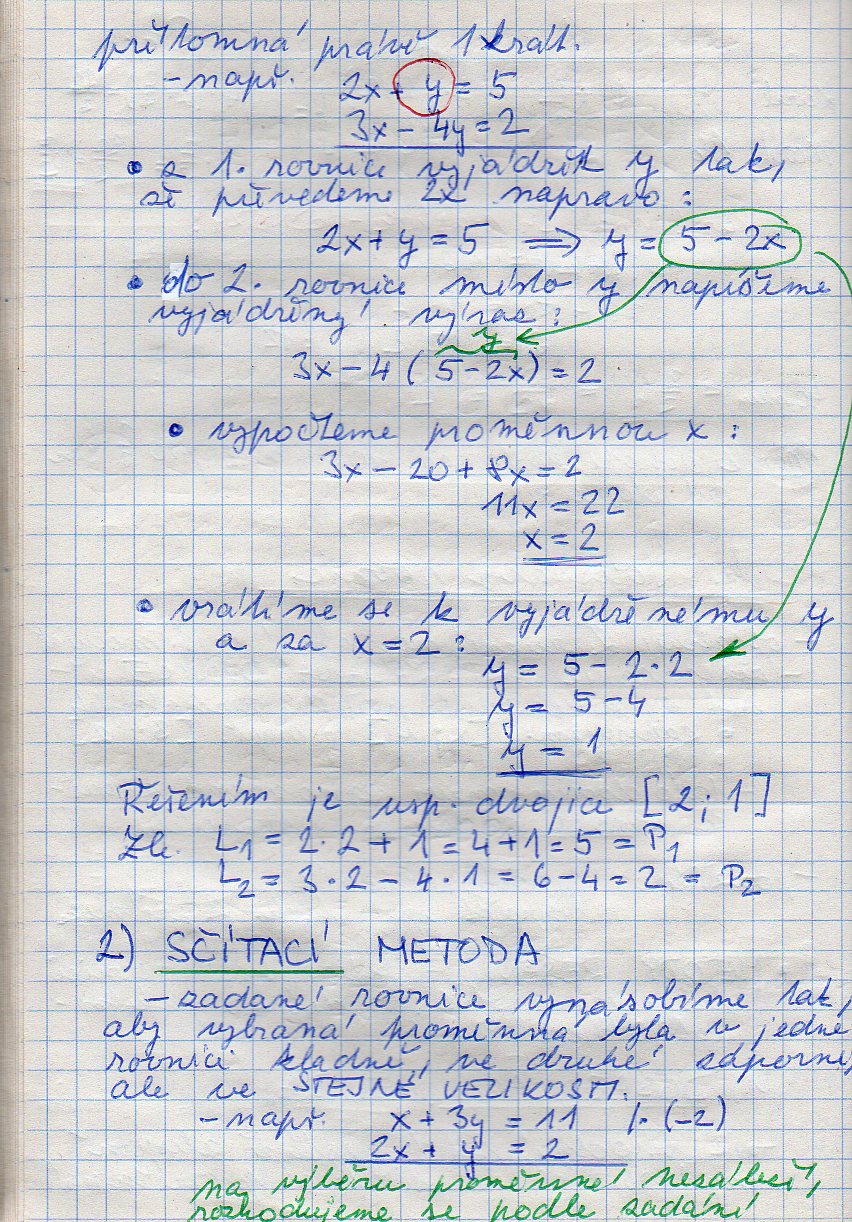 přítomná právě 1krát.
- např. 2x + y = 5
3x - 4y = 2
• z 1. rovnice vyjádřit y tak,
že převedeme 2x napravo:
2x + y = 5 ⟹ y = 5 - 2x
• do 2. rovnice místo y napíšeme
vyjádřený výraz:
y
3x - 4 (5 - 2x) = 2
• vypočteme proměnnou x:
3x - 20 + 8x = 2
11x = 22
x = 2
• vrátíme se k vyjádřenému y
a za x = 2:
y = 5 - 2·2
y = 5 - 4
y = 1
Řešením je usp. dvojice [2; 1]
Zk. L₁ = 2·2 + 1 = 4 + 1 = 5 = P₁
L₂ = 3·2 - 4·1 = 6 - 4 = 2 = P₂
2) SČÍTACÍ METODA
- zadané rovnice vynásobíme tak,
aby vybraná proměnná byla v jedné
rovnici kladně, ve druhé záporně,
ale ve STEJNÉ VELIKOSTI.
- např. x + 3y = 11 /· (-2)
2x + y = 2
na výběru proměnné nezáleží,
rozhodujeme se podle zadání